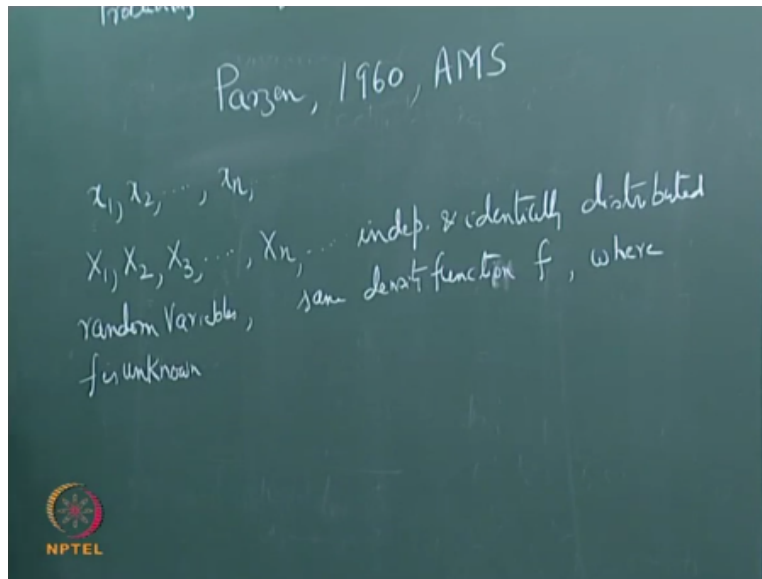 Training
Parzen, 1960, AMS
x₁, x₂, ..., xₙ,
X₁, X₂, X₃, ..., Xₙ, ... indep. & identically distributed
random variables, same density function f, where
f is unknown
NPTEL